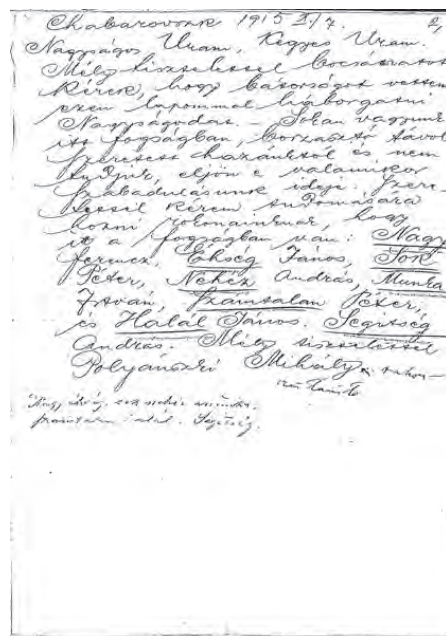 Chabarovszk 1915 X/7. 2,
Nagyságos Uram, Kegyes Uram.
Mély tisztelettel bocsánatot
kérek, hogy bátorságot vettem
ezen lapommal háborgatni
Nagyságodat. – Sokan vagyunk
itt fogságban, borzasztó távol
szeretett hazánktól és nem
tudjuk, eljön e valamikor
szabadulásunk ideje. Szere-
tettel kérem tudomására
hozni rokonainknak, hogy
itt a fogságban van: Nagy
Ferencz, Éhség János, Sok
Péter, Nehéz András, Munka
István, Számtalan Péter,
és Halál János. Segítség
András. Mély tisztelettel
Polyánszki Mihály
Nagy éhség, sok nehéz munka,
számtalan halál. Segítség.